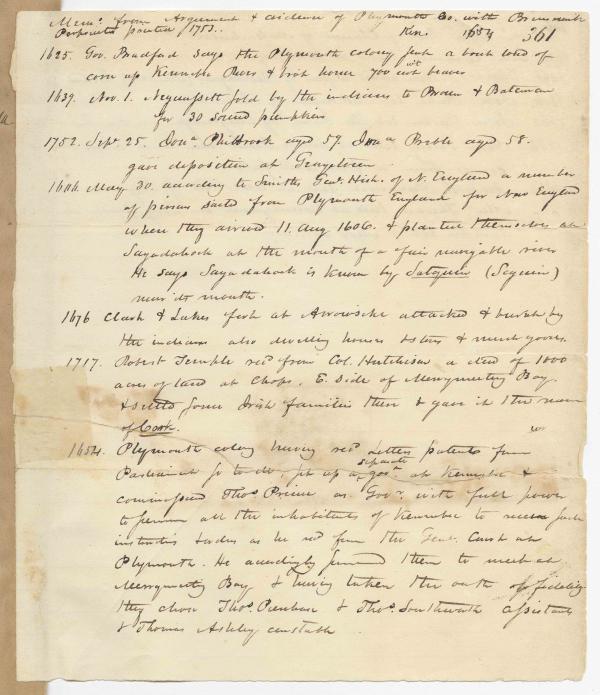 Mem.o from Argument & evidence of Plymouth Co. with Brunswick
Proprietors printed 1753. Ken. 1654 361
1625. Gov. Bradford says the Plymouth colony sent a boat load of
corn up Kennebec River & brot home 700 wt beaver
1639. Nov. 1. Neguassett sold by the indians to Brown & Bateman
for 30 sound pumpkins
1752. Sept. 25. Jon.a Philbrook aged 59. Jon.a Preble aged 58.
gave deposition at Georgetown
1606 May 30. according to Smiths Gen. Hist. of N. England a number
of persons sailed from Plymouth England for New England
where they arrived 11. Aug 1606. & planted themselves at
Sagadahock at the mouth of a fair navigable river
He says Sagadahock is known by Satquin (Seguin)
near its mouth.
1676 Clark & Lakes fort at Arrowsike attacked & burnt by
the indians also dwelling houses & stores & much goods.
1717. Robert Temple recd from Col. Hutchison a deed of 1000
acres of land at Chops. E. side of Merrymeeting Bay
& settled some Irish families there & gave it the name
of Cork.
1654. Plymouth colony having recd Letters patents from
Parliament so to do, set up a separate govt at Kennebec &
commissioned Thos. Prince as Govr. with full power
to summon all the inhabitants of Kennebec to receive such
instructions & orders as he recd from the Genl. Court at
Plymouth. He accordingly summoned them to meet at
Merrymeeting Bay & having taken the oath of fidelity
they chose Thos. Purchase & Thos. Southworth assistants
& Thomas Ashley constable